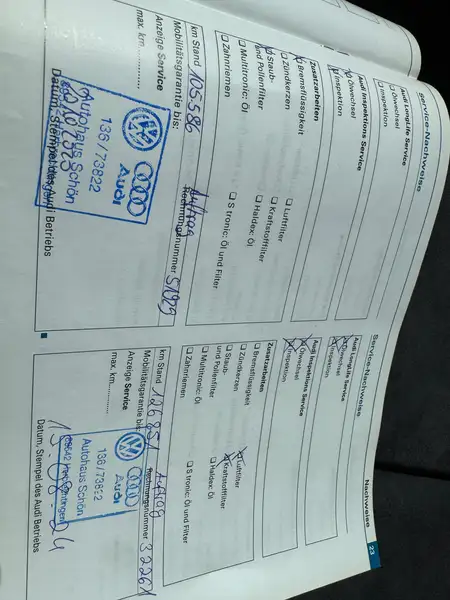 Service-Nachweise
Audi LongLife Service
Ölwechsel
Inspektion
Audi Inspektions Service
Ölwechsel
Inspektion
Zusatzarbeiten
Bremsflüssigkeit
Zündkerzen
Staub-
und Pollenfilter
Multitronic: Öl
Zahnriemen
Luftfilter
Kraftstofffilter
Haldex: Öl
S tronic: Öl und Filter
km Stand 105586
Auftrag
Rechnungsnummer 51929
Mobilitätsgarantie bis:
Anzeige Service
max. km
Audi
136/73822
Autohaus Schön
Datum, Stempel des Audi Betriebs
Service-Nachweise
Nachweise
23
Audi LongLife Service
Ölwechsel
Inspektion
Audi Inspektions Service
Ölwechsel
Inspektion
Zusatzarbeiten
Bremsflüssigkeit
Zündkerzen
Staub-
und Pollenfilter
Multitronic: Öl
Zahnriemen
Luftfilter
Kraftstofffilter
Haldex: Öl
S tronic: Öl und Filter
km Stand 126251
Auftrag
Rechnungsnummer 32261
Mobilitätsgarantie bis
Anzeige Service
max. km
Audi
136/73822
Autohaus Schön
Datum, Stempel des Audi Betriebs